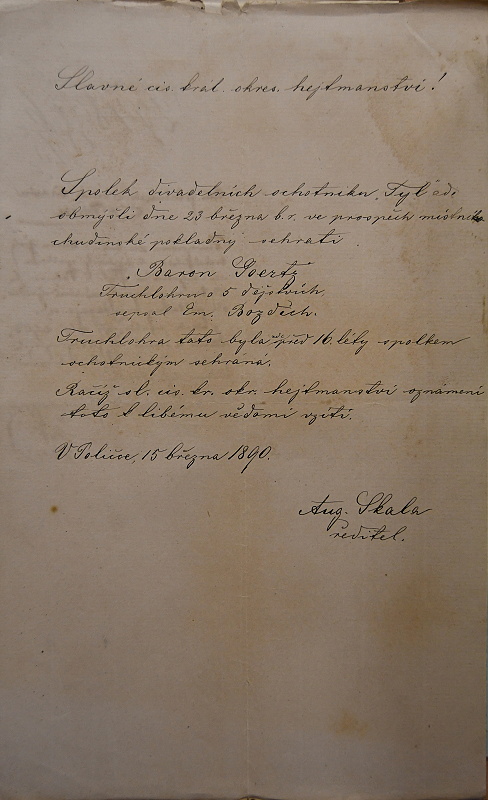 Slavné cis. král. okres. hejtmanství!
Spolek divadelních ochotníku „Tyl"
obmýšlí dne 23 března b. r. ve prospěch
chudinské pokladny sehrati
„Baron Goertz"
Truchlohru o 5 dějstvích,
sepsal Em. Bozděch.
Truchlohra tato byla již před 16. léty spolkem
ochotnickým sehrána.
Račiž sl. cis. kr. okr. hejtmanství oznámení
toto k libému vědomí vzíti.
V Poličce, 15 března 1890.
Aug. Skala
ředitel.